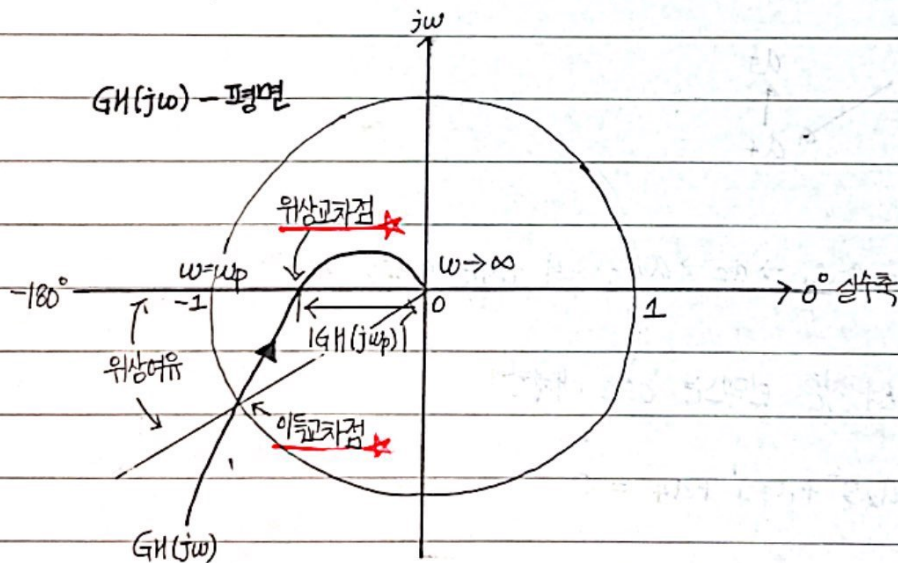 jω
GH(jω) - 평면
위상교차점
ω=ωp
ω→∞
-180°
-1
0
1
0° 실수축
|GH(jωp)|
위상여유
이득교차점
GH(jω)